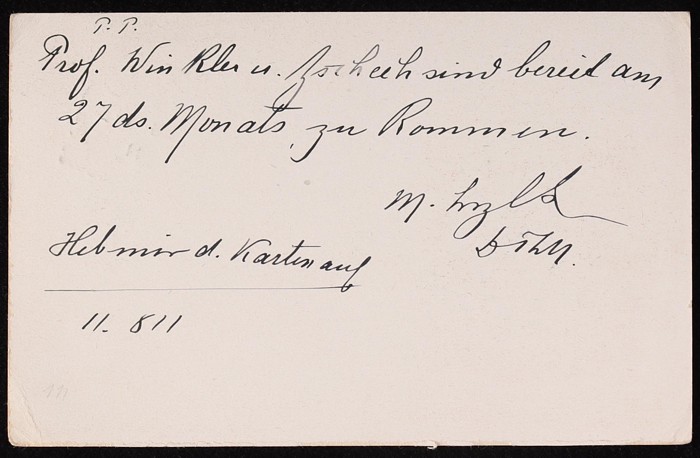 P. P.
Prof. Winkler u. Zschech sind bereit am
27 ds. Monats, zu Kommen.
M.
Heb mir d. Karten auf
11. 811